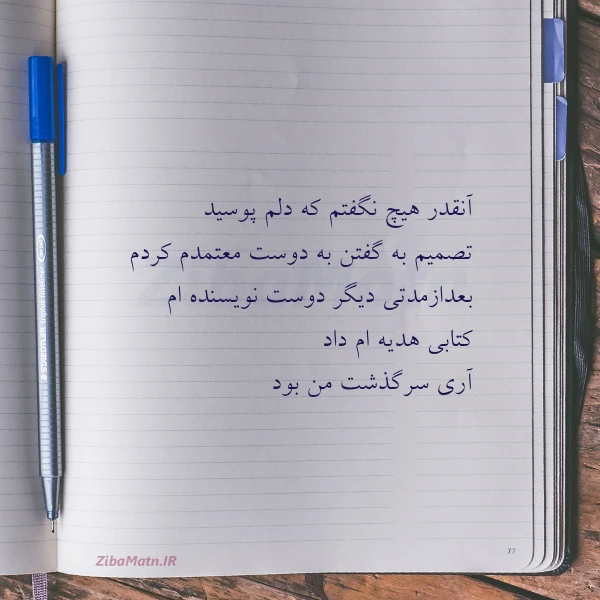 آنقدر هیچ نگفتم که دلم پوسید
تصمیم به گفتن به دوست معتمدم کردم
بعدازمدتی دیگر دوست نویسنده ام
کتابی هدیه ام داد
آری سرگذشت من بود
77
ZibaMatn.IR